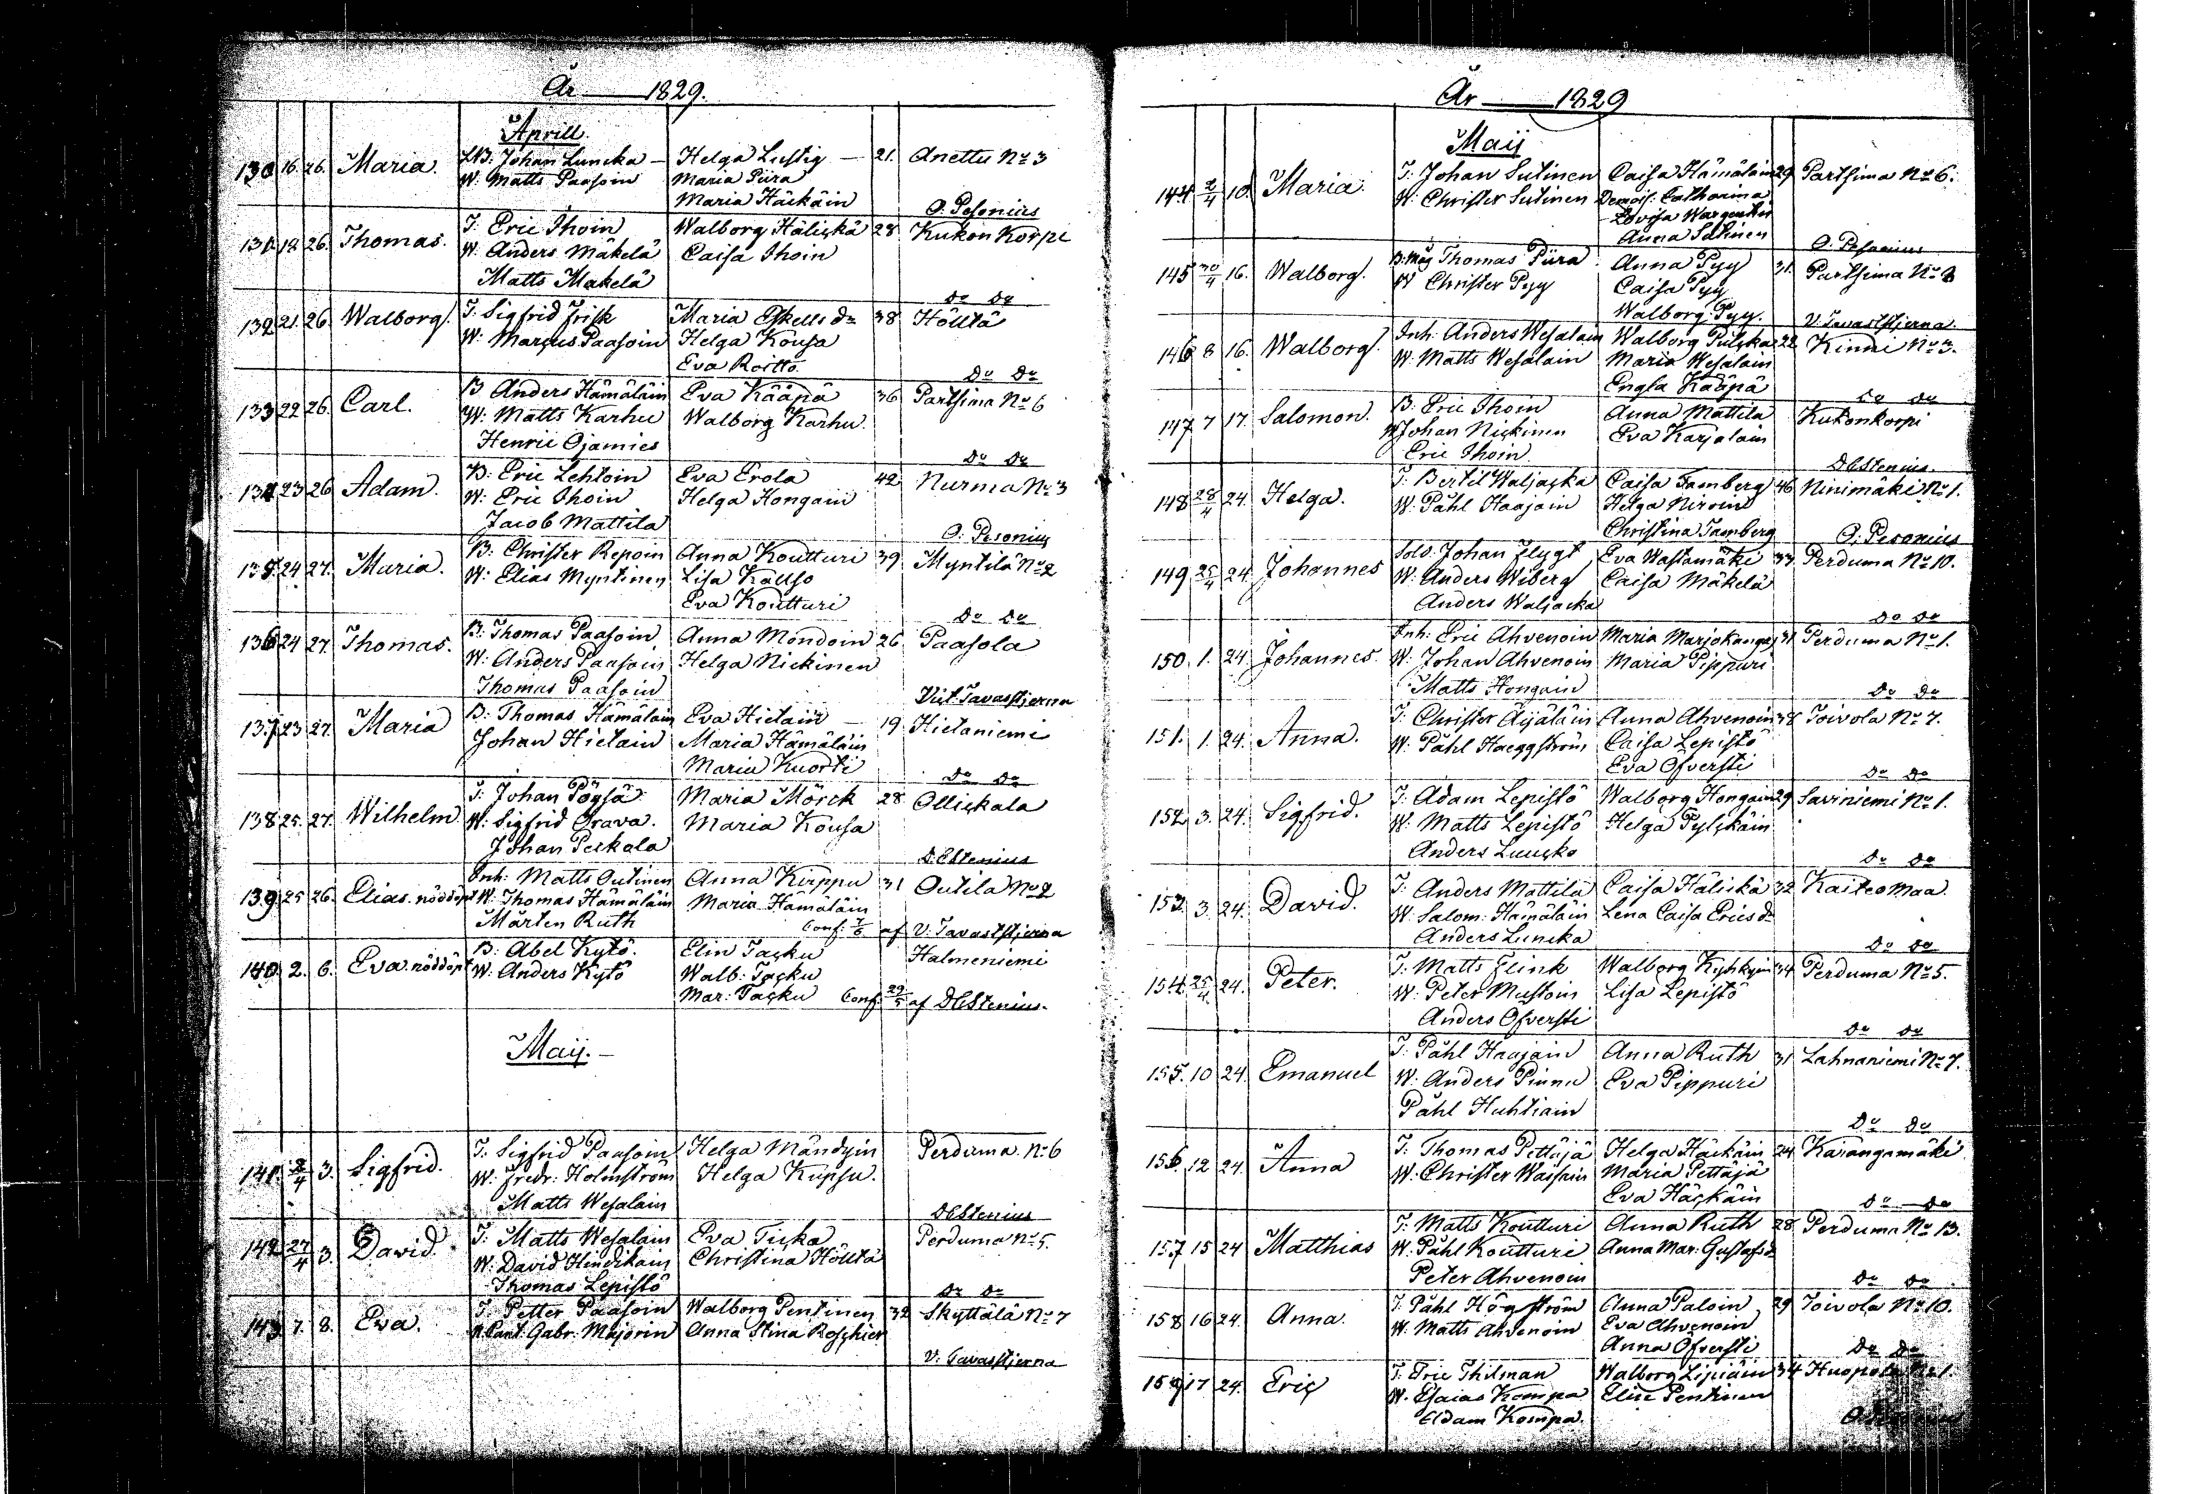 År 1829.
Aprill.
130 16. 26. Maria. Johan Luncka Helga Lustig 21. Anettu No 3
W: Matts Paasoin Maria Piira
Maria Häckäin O. Pesonius
131. 18. 26. Thomas. T: Eric Ihoin Walborg Hälickä 28 Kukon Korpi
W: Anders Mäkelä Caisa Ihoin
Matts Makelä Do Do
132. 21. 26. Walborg. T: Sigfrid Frisk Maria Eskells dr 38 Hölttä
W: Marcus Paasoin Helga Kousa
Eva Roitto Do Do
133 22 26. Carl. B Anders Hämäläin Eva Kääpä 36 Partsima No 6
W: Matts Karhu Walborg Karhu.
Henric Ojamies Do Do
134 23 26 Adam. B: Eric Lehtoin Eva Erola 42 Nurma No 3
W: Eric Ihoin Helga Hongain
Jacob Mattila O. Pesonius
135. 24 27. Maria. B: Christer Repoin Anna Koutturi 39 Myntilä No 2
W: Elias Myntinen Lisa Kauso
Eva Koutturi Do Do
136 24 27. Thomas. B: Thomas Paasoin Anna Mondoin 26 Paasola
W: Anders Paasoin Helga Nickinen
Thomas Paasoin Vict. Tavaststjerna
137 23 27. Maria B: Thomas Hämäläin Eva Hietain 19 Hietaniemi
Johan Hietain Maria Hämäläin
Maria Kuorti Do Do
138 25. 27. Wilhelm T: Johan Pöysä Maria Mörck 28 Ollickala
W: Sigfrid Orava. Maria Kousa
Johan Peckala D. Estenius
139 25 26. Elias. nöddöpt Inh: Matts Outinen Anna Kirppu 31 Outila No 2
W: Thomas Hämäläin Maria Hämäläin
Mårten Ruth Conf: af V. Tavaststjerna
140 2. 6. Eva. nöddöpt B: Abel Kytö. Elin Tacku Halmeniemi
W: Anders Kytö Walb: Tacku
Mar: Tacku Conf 29/5 af D Estenius.
Maij.
141. 3. Sigfrid. T: Sigfrid Paasoin Helga Mändyin Perduma No 6
W: Fredr: Holmström Helga Kupsu.
Matts Wesalain D Estenius
142 27/4 3. David. T: Matts Wesalain Eva Ticka Perduma No 5.
W: David Hindikain Christina Höltta
Thomas Lepistö Do Do
143 7. 8. Eva. T: Petter Paasoin Walborg Pentinen 32 Skyttälä No 7
Gabr: Majorin Anna Stina Roschier
V: Tavaststjerna
År 1829
Maij
144 2/4 10. Maria. T: Johan Sutinen Caisa Hämäläin 29 Partsima No 6.
W: Christer Sutinen Demois: Catharina
Lovisa Wargentin
Anna Salinen O. Pesonius
145 30/4 16. Walborg. Thomas Piira Anna Pyy 31. Partsima No 3
W Christer Pyy Caisa Pyy
Walborg Pyy. V. Tavaststjerna
146 8 16. Walborg. Inh: Anders Wesalain Walborg Pulcka 22 Kinni No 3.
W: Matts Wesalain Maria Wesalain
Engla Kääpä Do Do
147 7 17. Salomon. B: Eric Ihoin Anna Mattila Kukonkorpi
W Johan Nickinen Eva Karjalain
Eric Ihoin D Estenius.
148 28/4 24. Helga. T: Bertil Waljacka Caisa Tamberg 46 Ninimäki No 1.
W: Påhl Haajain Helga Niroin
Christina Tamberg O: Pesonius
149 25/4 24 Johannes Sold. Johan Flygt Eva Wastamäki 33 Perduma No 10.
W: Anders Wiberg Caisa Mäkelä
Anders Waljacka Do Do
150 1. 24. Johannes. Inh: Eric Ahvenoin Maria Marjokangas 31 Perduma No 1.
W: Johan Ahvenoin Maria Pippuri
Matts Hongain Do Do
151. 1. 24. Anna. T: Christer Äijäläin Anna Ahvenoin 38 Toivola No 7.
W: Påhl Haeggström Caisa Lepistö
Eva Öfversti Do Do
152 3. 24. Sigfrid. T: Adam Lepistö Walborg Hongain 29 Saviniemi No 1.
W: Matts Lepistö Helga Pylckäin
Anders Luncka Do Do
153 3. 24. David. T: Anders Mattila Caisa Häliskä 32 Kaiteo Maa.
W: Salom: Hämäläin Lena Caisa Erics dr
Anders Luncka Do Do
154. 25/4 24. Peter. T: Matts Flink Walborg Kyhkyin 34 Perduma No 5.
W: Peter Mustoin Lisa Lepistö
Anders Öfversti Do Do
155. 10 24. Emanuel T: Påhl Haajain Anna Ruth 31 Lahnaniemi No 7.
W: Anders Pinna Eva Pippuri
Påhl Huhtiain Do Do
156. 12 24. Anna T: Thomas Pettäjä Helga Häckäin 24 Karangamäki
W: Christer Wassain Maria Pettäjä
Eva Häckäin Do Do
157 15 24 Matthias T: Matts Koutturi Anna Ruth 28 Perduma No 13.
W: Påhl Koutturi Anna Mar: Gustafs dr
Peter Ahvenoin Do Do
158 16 24. Anna. T: Påhl Högström Anna Paloin 29 Toivola No 10.
W: Matts Ahvenoin Eva Ahvenoin
Anna Öfversti Do Do
159 17 24. Eric T: Eric Thilman Walborg Lipiäin 34 No 1.
W: Esaias Kompa Elin Pentinen
Adam Kompa.